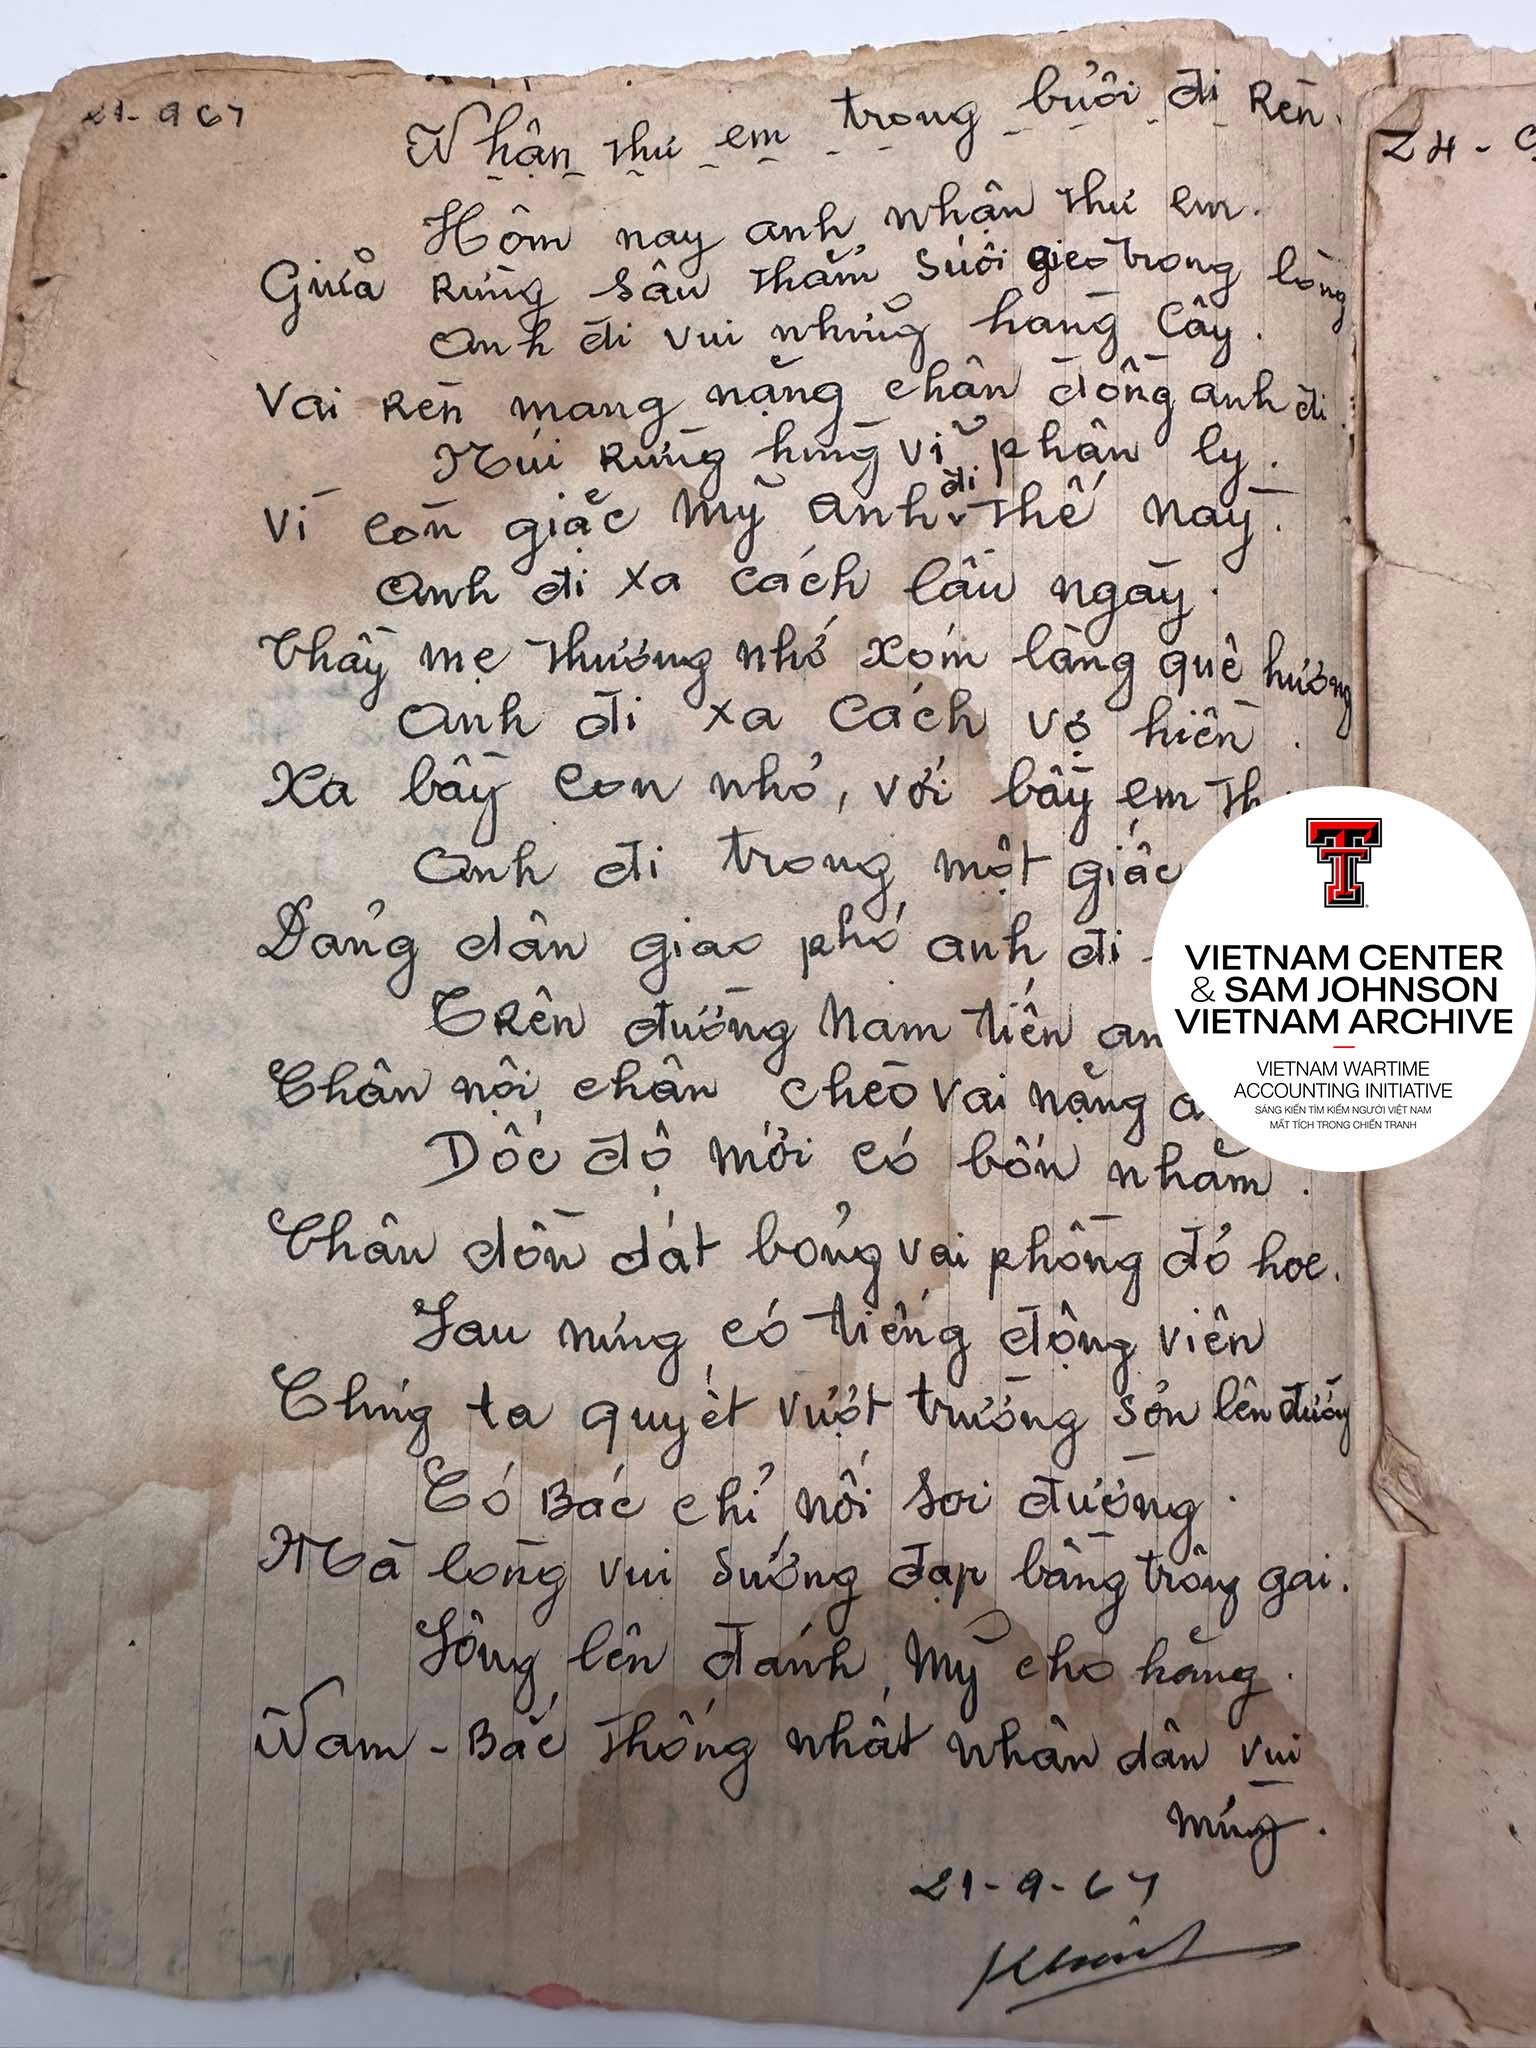 21-9 67
Nhận thư em trong buổi đi Rèn.
Hôm nay anh nhận thư em.
Giữa Rừng sâu thẳm suối gieo trong lòng
anh đi vui những hàng cây.
Vai Rèn mang nặng chân dồng anh đi.
Núi Rừng hùng vĩ phân ly.
Vì còn giặc mỹ anh đi thế này.
anh đi xa cách lâu ngày.
Thầy mẹ thương nhớ xóm làng quê hương
anh đi xa cách vợ hiền.
Xa bầy con nhỏ, với bầy em
anh đi trong một giấc
Đảng dân giao phó anh đi
Trên đường Nam tiến
Chân nọi chân chèo vai nặng
Dốc độ mới có bốn nhăm.
Chân dồn dát bỏng vai phồng đỏ hoe.
Sau núng có tiếng động viên
Chúng ta quyết vượt trường sơn lên đường
Có Bác chỉ nối soi đường.
Mà lòng vui sướng đạp bằng trông gai.
Sông lên đánh Mỹ cho hăng.
Nam - Bắc thống nhất nhân dân vui
mừng.
21-9-67
24-
VIETNAM CENTER
& SAM JOHNSON
VIETNAM ARCHIVE
VIETNAM WARTIME
ACCOUNTING INITIATIVE
SÁNG KIẾN TÌM KIẾM NGƯỜI VIỆT NAM
MẤT TÍCH TRONG CHIẾN TRANH